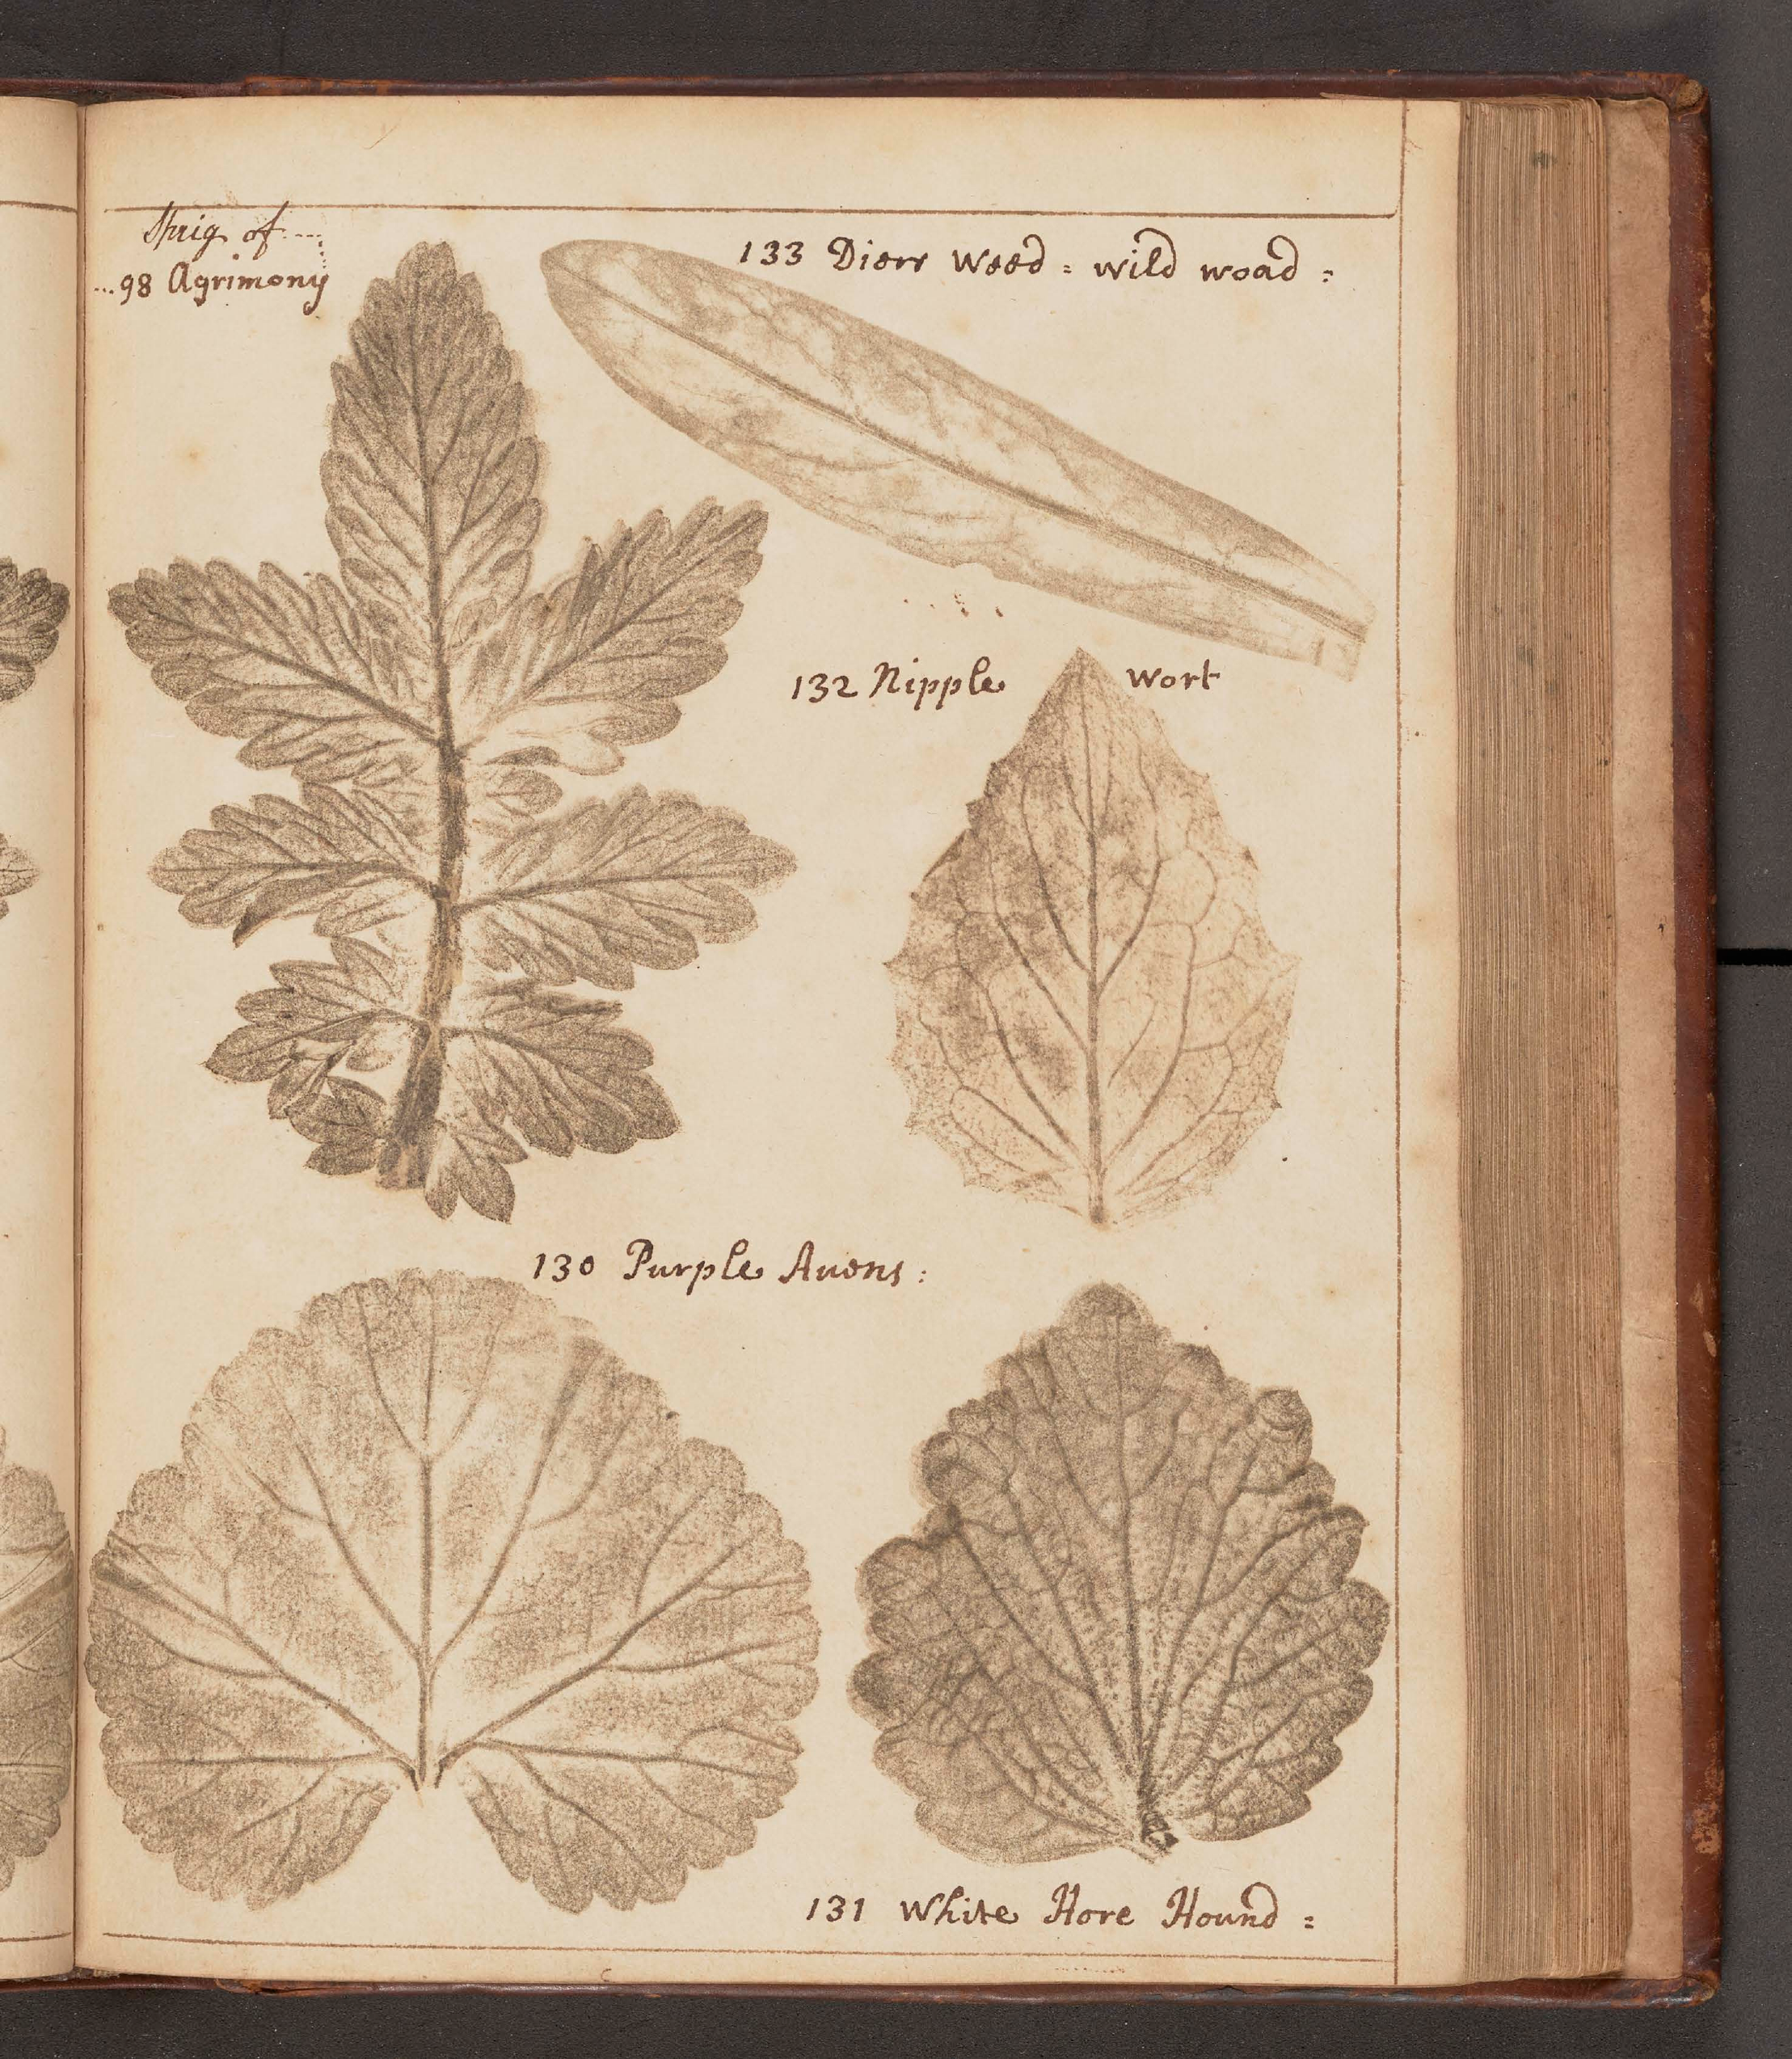 Sprig of....
...98 Agrimony
133 Diers Weed = wild woad :
132 Nipple wort
130 Purple Auens :
131 White Hore Hound =